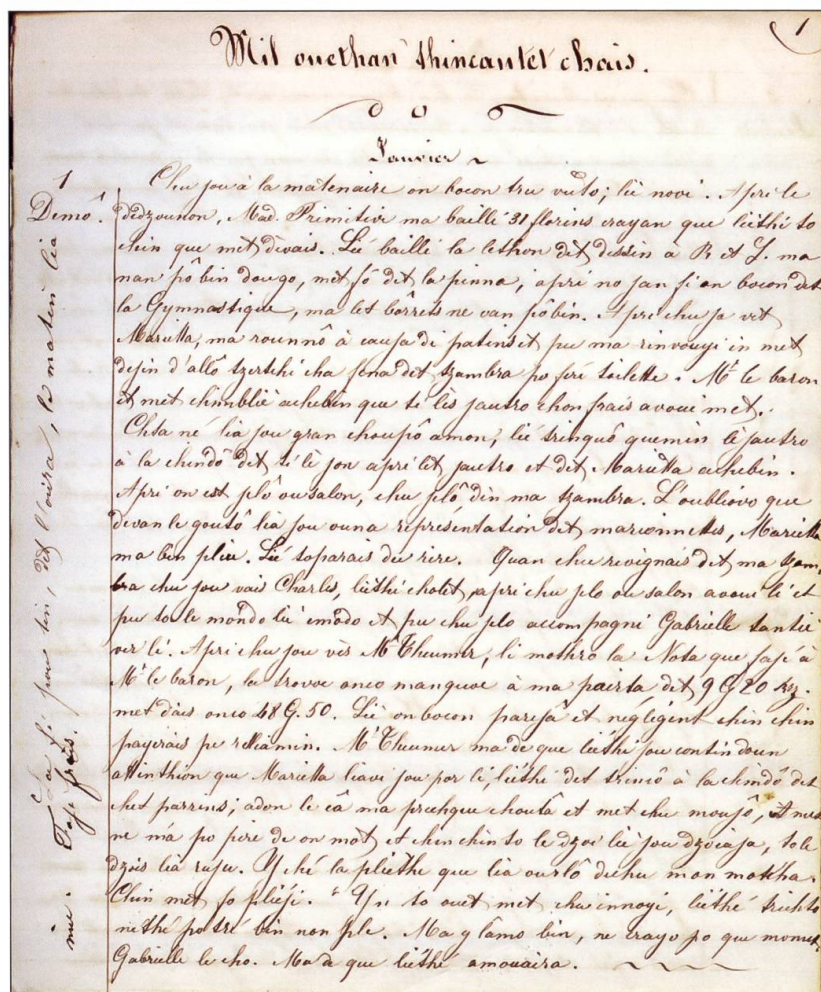 1
Mil ouethan thincantet chais.
Janvier
1
Demô.
Chu jou à la matenaire on bocon tru vuto; lié novi. Apri le
dédzounon, Mad. Primitive ma baillé 31 florins crayan que liéthi to
chin que met divais. Lié baillé la lethon det dessin à R et J. ma
nan pô bin dougo, met fô det la pinna, apri no jan fi on bocon det
la Gymnastique, ma let bôrrets ne van pô bin. Apri chu ja vit
Marietta, ma rounnô à cauja di patins et pu ma rinvouyi in met
dejin d'allô tzertchi cha fona det tzambra po fri toilette. Mr. le baron
et met chinblié achebin que ti lis jautro chon frais avoui met.
Chta né lia jou gran choupô amon, lié trinquô quemin lé jautro
à la chindô det ti lé jon apri let jautro et det Marietta achebin.
Apri on est plô ou salon, chu plô din ma tzambra. L'oubliovo que
devan le goutô lia jou ouna représentation det marionnettes, Marietta
ma bin pliu. Lié toparais du rire. Quan chu revignais det ma tzam-
bra chu jou vais Charles, liéthi cholet, apri chu plo ou salon avoui lé et
pu to le mondo lié émodo et pu chu plo accompagni Gabrielle tantié
ver lé. Apri chu jou vèr Mr Theumer, li mothro la Nota que fajé à
Mr le baron, la trovoe onco manquoe à ma pairta det 9 G 20 kz.
met dais onco 48 G. 50. Lié on bocon parejâ et négligent chin chin
payerais pe relliamin. Mr Theumer ma de que liéthi jou contin doun
attinthion que Marietta liavi jou por li, liéthi det trincô à la chindô det
chet parrins; adon le câ ma prechque choutâ et met chu moujô, et nus
ne m'a po pire de on mot et chin chin to le dzoi lié jou dzoiaja, to le
dzois lia raju. Y ché la pliéthe que lia ourlô dechu mon motcha.
Chin met fo pliéji. Yn to ouet met chu innogi, liéthé trichto
niéthé po tré bin non ple. Ma y lâmo bin, ne crayo po que momet
Gabrielle le cho. Ma de que liéthé amouaira.
La fi pou tin, det l'ouira, le matin lia
niu. Fajé frais.